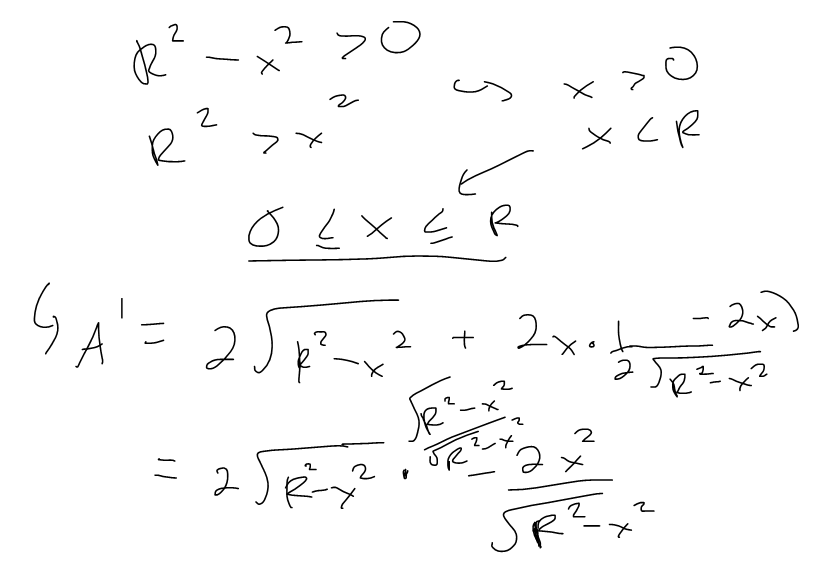 R² - x² > 0
R² > x² ↪ x > 0
x < R
0 ≤ x ≤ R
↳ A' = 2√(R² - x²) + 2x · 1/(2√(R² - x²)) - 2x)
= 2√(R² - x²) · √(R² - x²)/√(R² - x²) - 2x²/√(R² - x²)